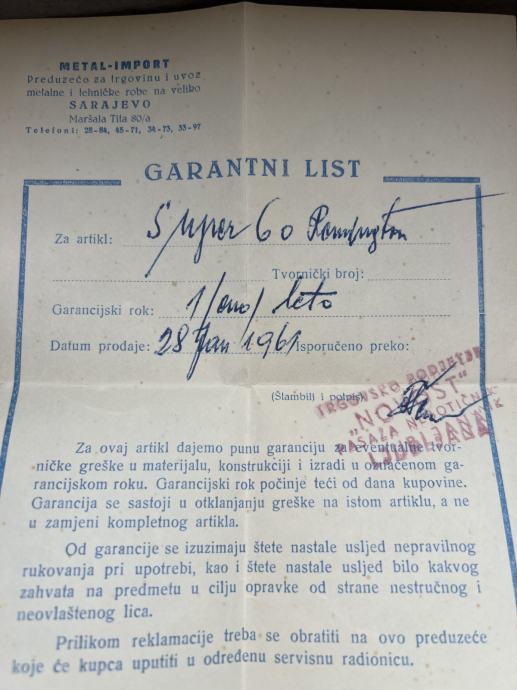 METAL-IMPORT
Preduzeće za trgovinu i uvoz
metalne i tehničke robe na veliko
SARAJEVO
Maršala Tita 80/a
Telefoni: 28-84, 45-71, 34-73, 33-97
GARANTNI LIST
Za artikl: Super 60 Remington
Tvornički broj:
Garancijski rok: 1/eno/ leto
Datum prodaje: 28 Jan 1961 Isporučeno preko:
(Štambilj i potpis)
TRGOVSKO PODJETJE
"NOVOST"
PASAŽA NEBOTIČNIK
LJUBLJANA
Za ovaj artikl dajemo punu garanciju za eventualne tvor-
ničke greške u materijalu, konstrukciji i izradi u označenom ga-
rancijskom roku. Garancijski rok počinje teći od dana kupovine.
Garancija se sastoji u otklanjanju greške na istom artiklu, a ne
u zamjeni kompletnog artikla.
Od garancije se izuzimaju štete nastale usljed nepravilnog
rukovanja pri upotrebi, kao i štete nastale usljed bilo kakvog
zahvata na predmetu u cilju opravke od strane nestručnog i
neovlaštenog lica.
Prilikom reklamacije treba se obratiti na ovo preduzeće
koje će kupca uputiti u određenu servisnu radionicu.